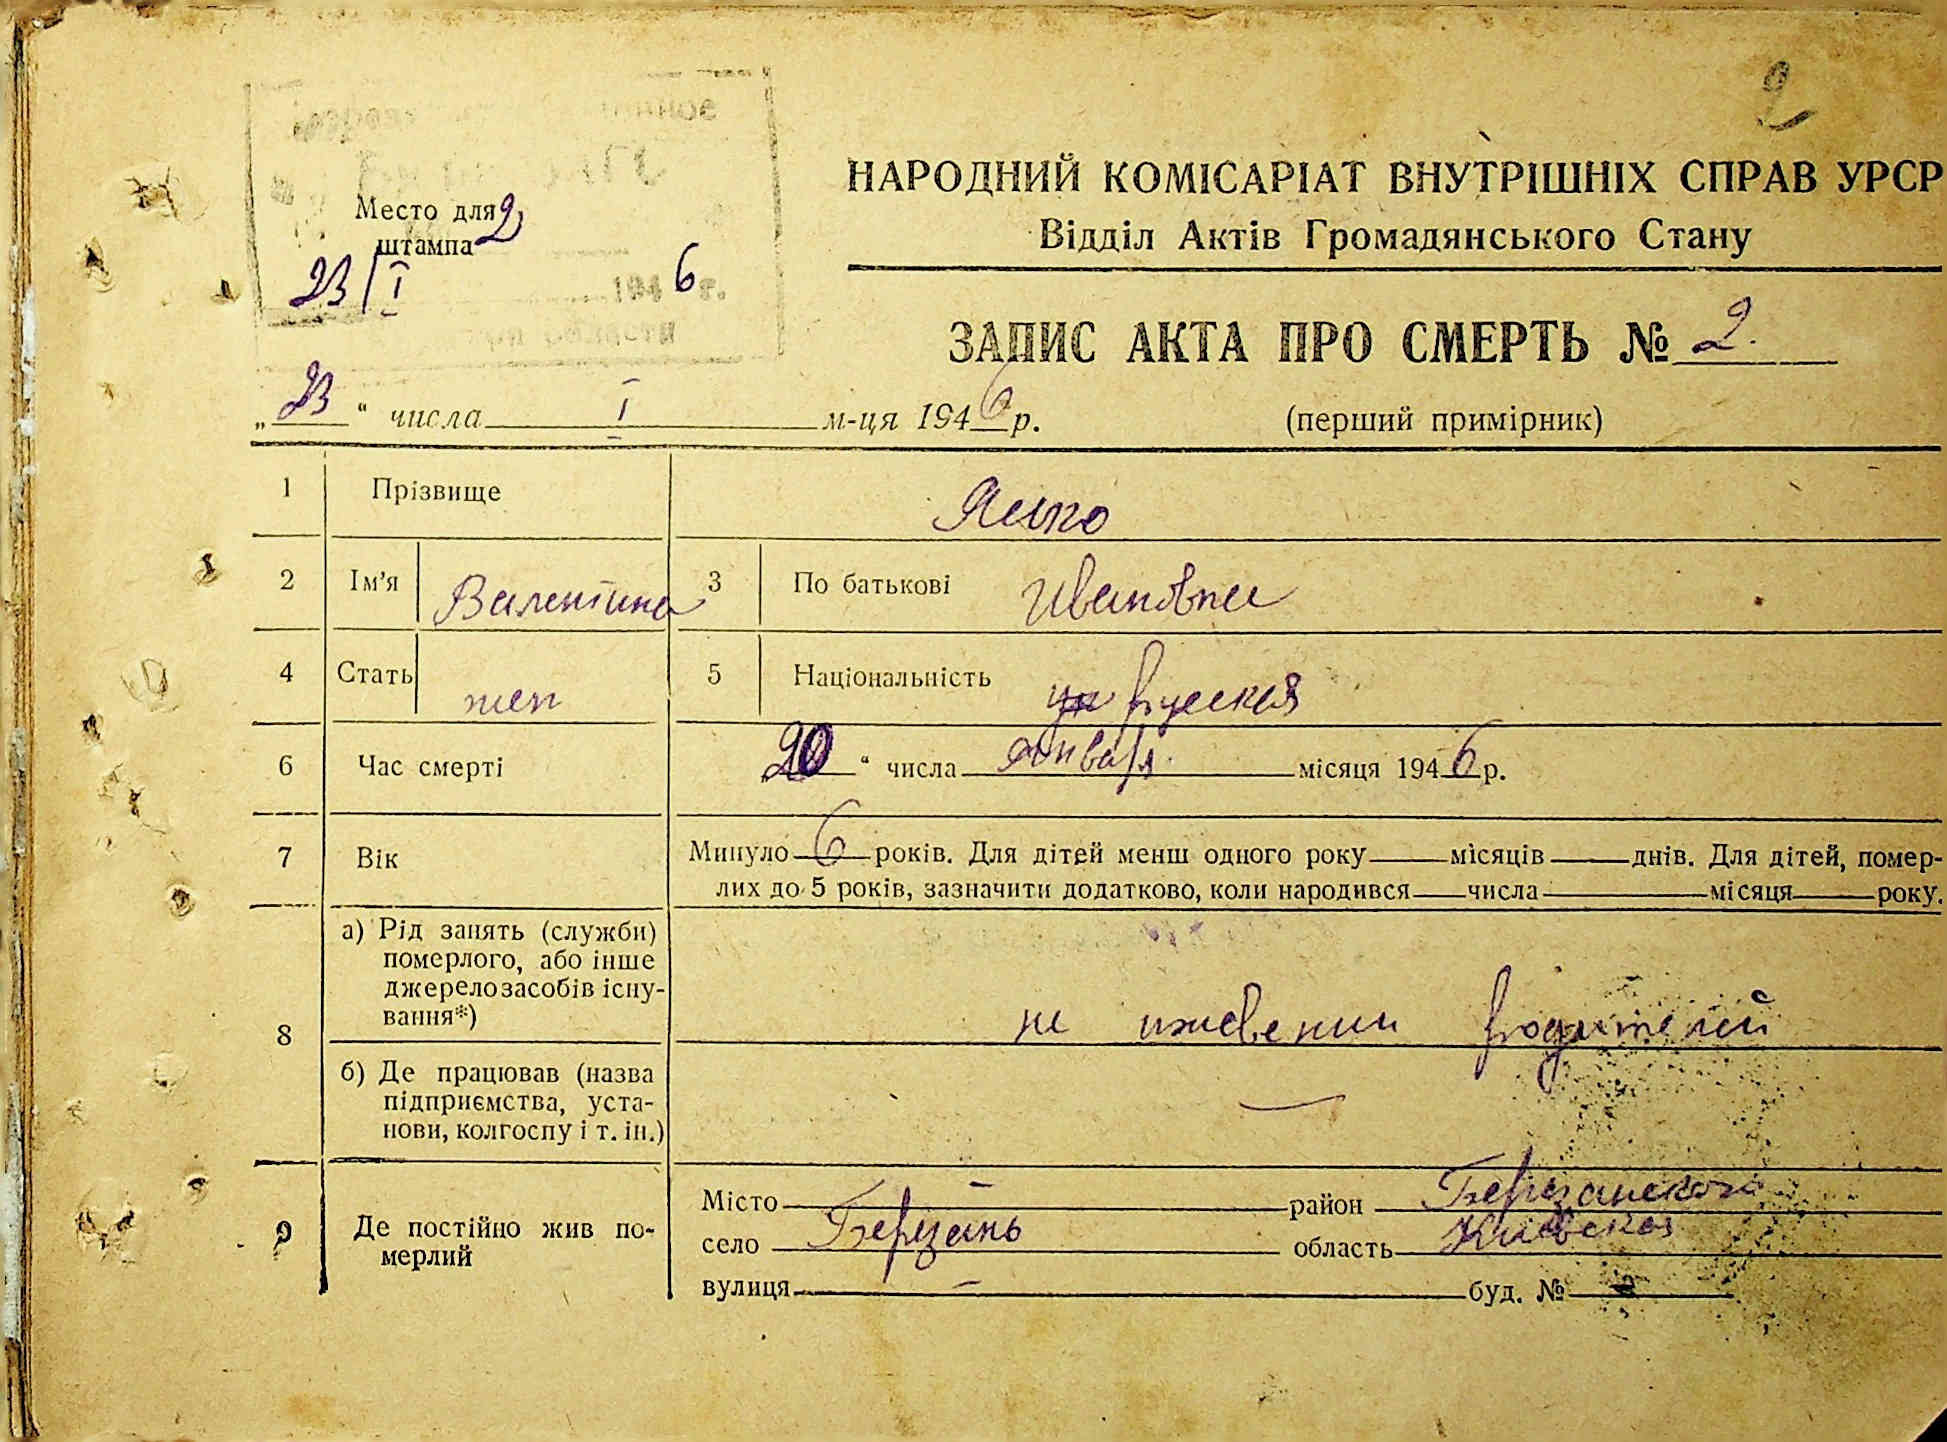 2
НАРОДНИЙ КОМІСАРІАТ ВНУТРІШНІХ СПРАВ УРСР
Відділ Актів Громадянського Стану
Место для 2
штампа
23/I 1946 г.
области
ЗАПИС АКТА ПРО СМЕРТЬ № 2.
„23“ числа I м-ця 1946 р. (перший примірник)
1 Прізвище
2 Ім'я Валентина 3 По батькові Ивановна
4 Стать жен 5 Національність ук русская
6 Час смерті „20“ числа января місяця 1946 р.
7 Вік Минуло 6 років. Для дітей менш одного року — місяців — днів. Для дітей, помер-
лих до 5 років, зазначити додатково, коли народився — числа — місяця — року.
8 а) Рід занять (служби)
померлого, або інше
джерело засобів існу-
вання*)
на иждвении родителей
б) Де працював (назва
підприємства, уста-
нови, колгоспу і т. ін.) —
9 Де постійно жив по-
мерлий
Місто — район Березанского
село Березань область Киевская
вулиця — буд. № —